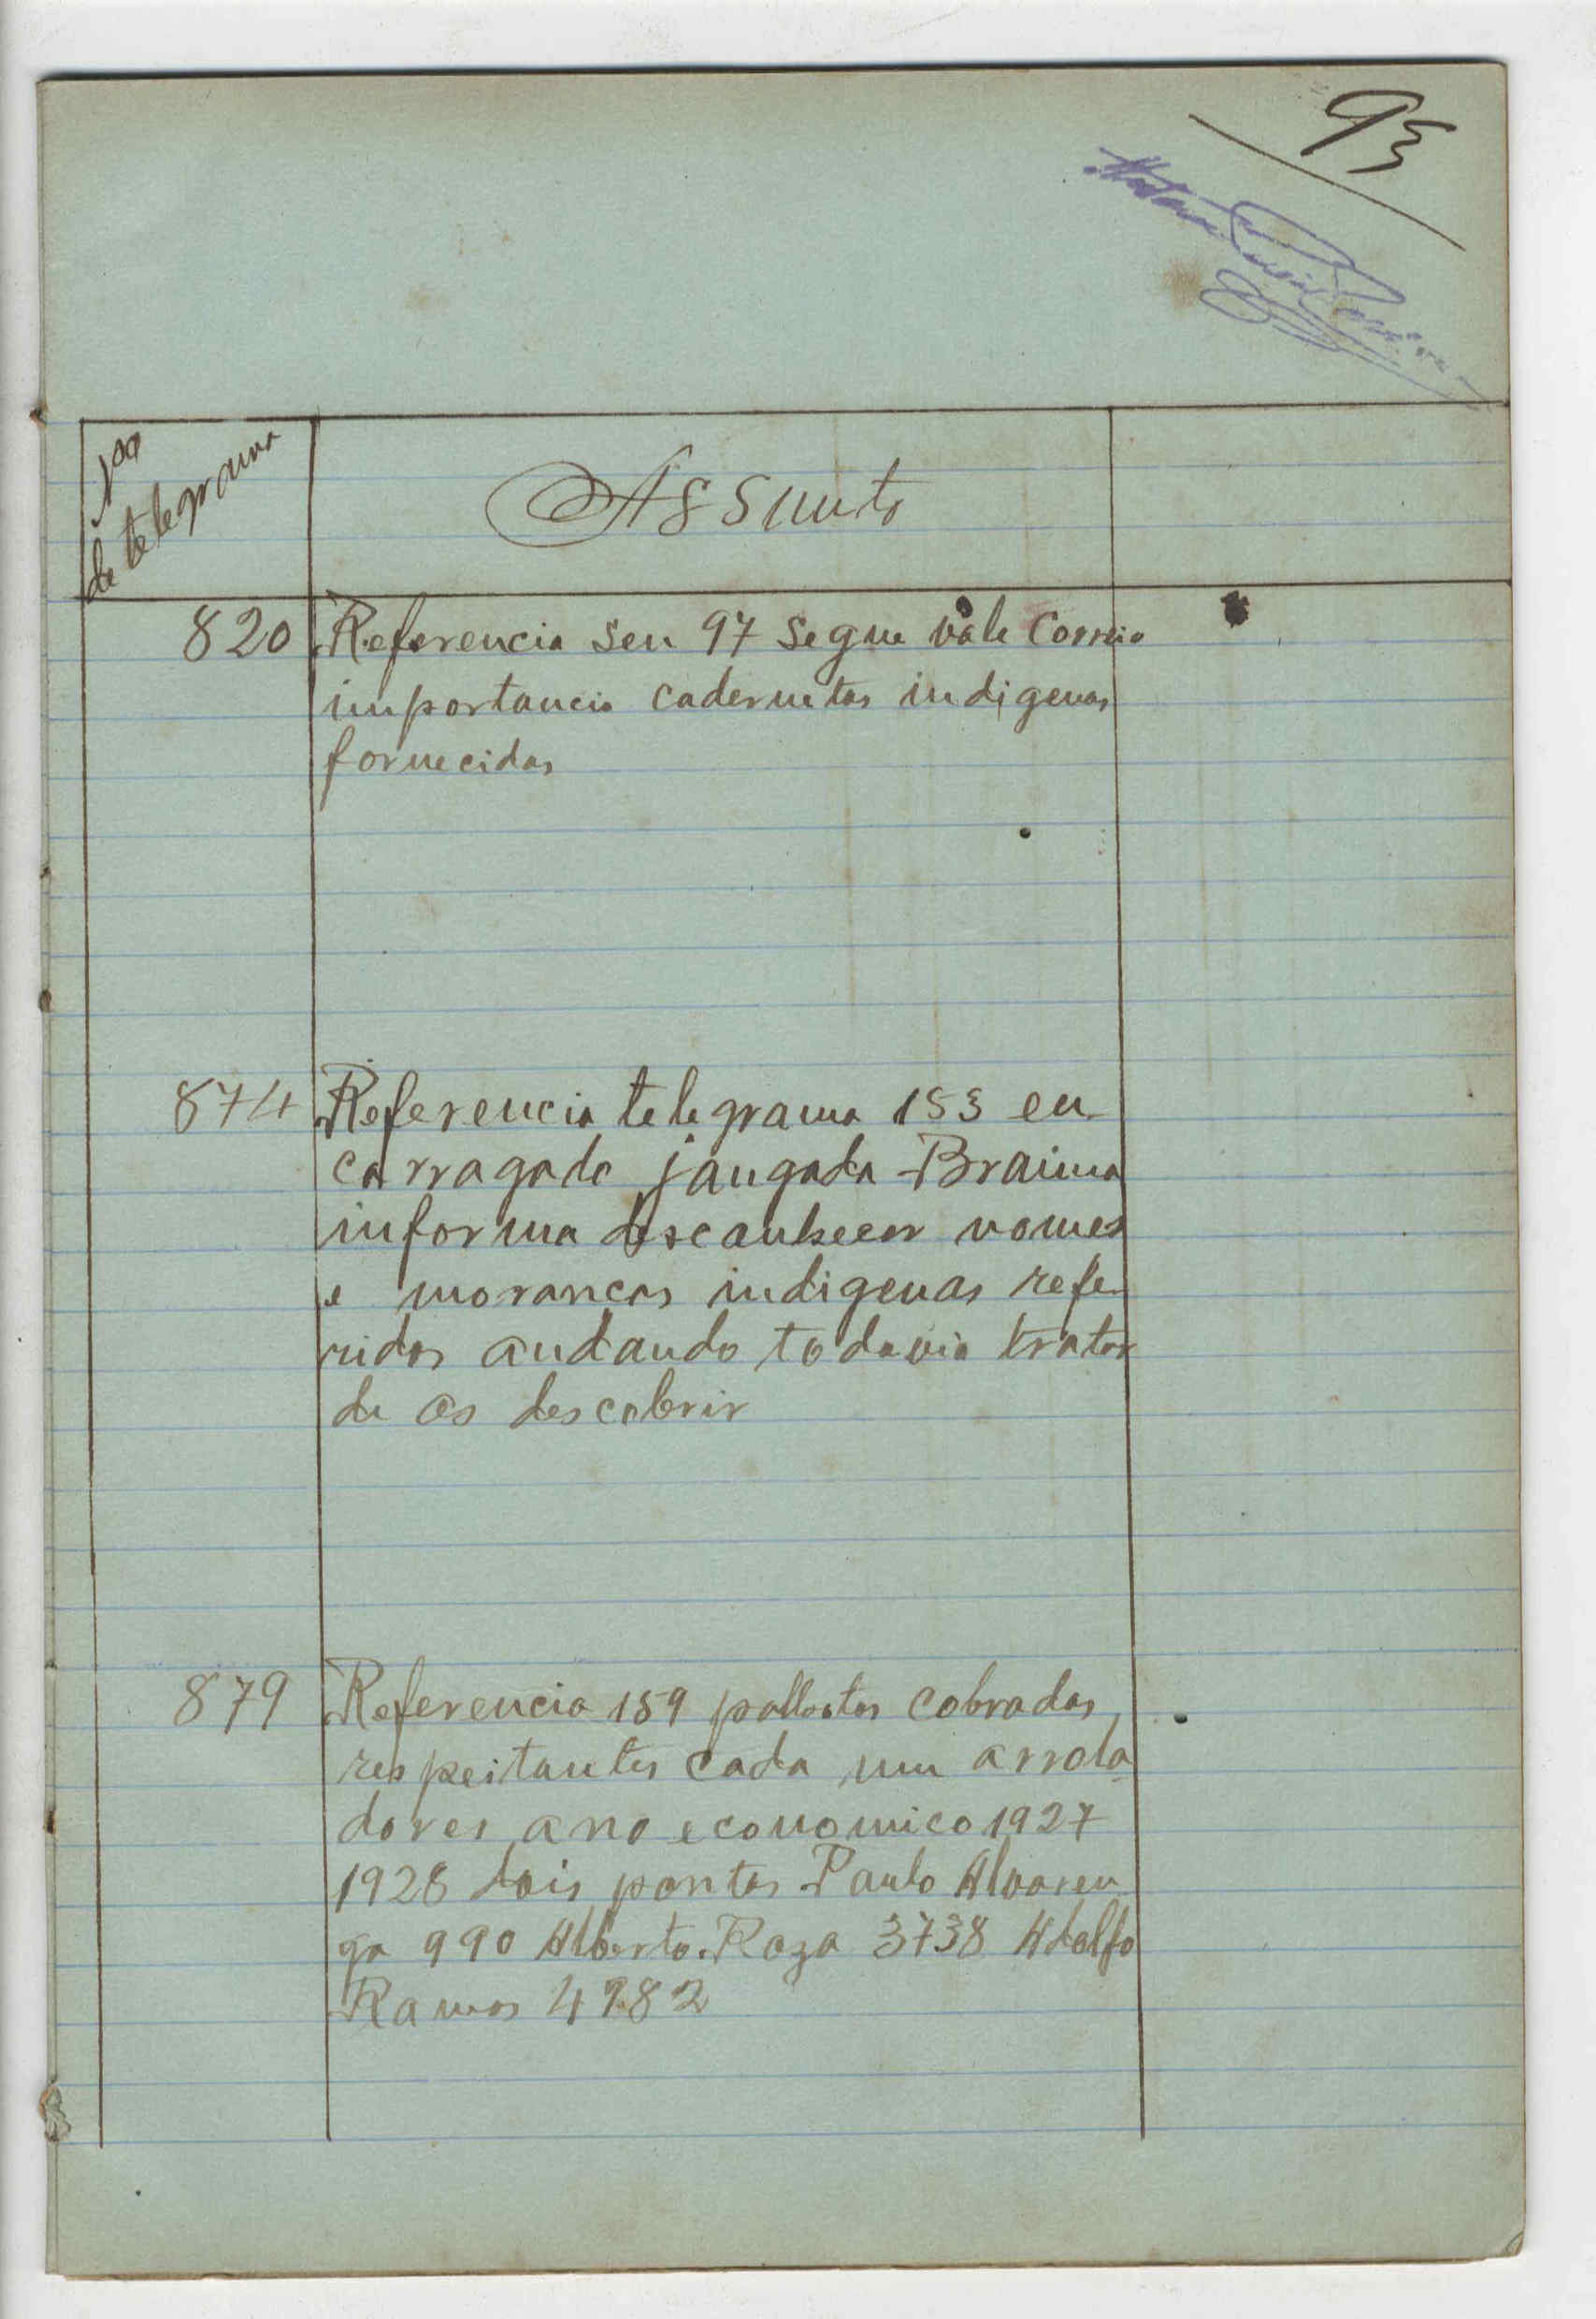 93
Nº
de telegrama
Assunto
820 Referencia seu 97 segue vale correio
importancia cadernetas indigenas
fornecidas
874 Referencia telegrama 153 en-
carragado jangada Braima
informa desconhecer nomes
e morancas indigenas refe-
ridos andando todavia tratar
de os descobrir
879 Referencia 159 palhotas cobradas
respeitantes cada um arrola
dores ano economico 1927
1928 dois pontos Paulo Alvaren
ga 990 Alberto Roza 3738 Adolfo
Ramos 4982